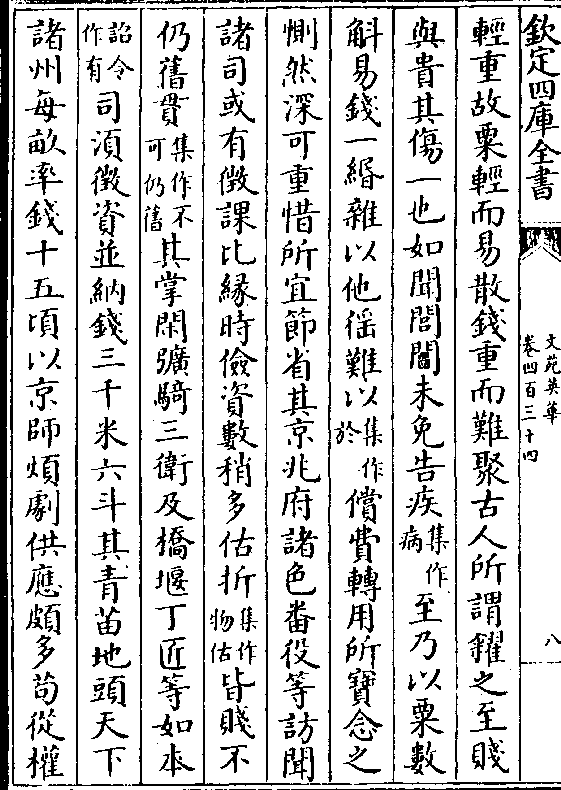 欽定四庫全書
文苑英華
卷四百三十四
八
輕重故粟輕而易散錢重而難聚古人所謂糴之至賤
與貴其傷一也如聞閭閻未免告疾集作病至乃以粟數
斛易錢一緡雜以他徭難以集作於償費轉用所寶念之
惻然深可重惜所宜節省其京兆府諸色番役等訪聞
諸司或有徵課比緣時儉資數稍多估折集作物估皆賤不
仍舊貫集作不可仍舊其掌閑彍騎三衛及橋堰丁匠等如本
詔令作有司須徵資並納錢三千米六斗其青苗地頭天下
諸州每畝率錢十五頃以京師煩劇供應頗多苟從權